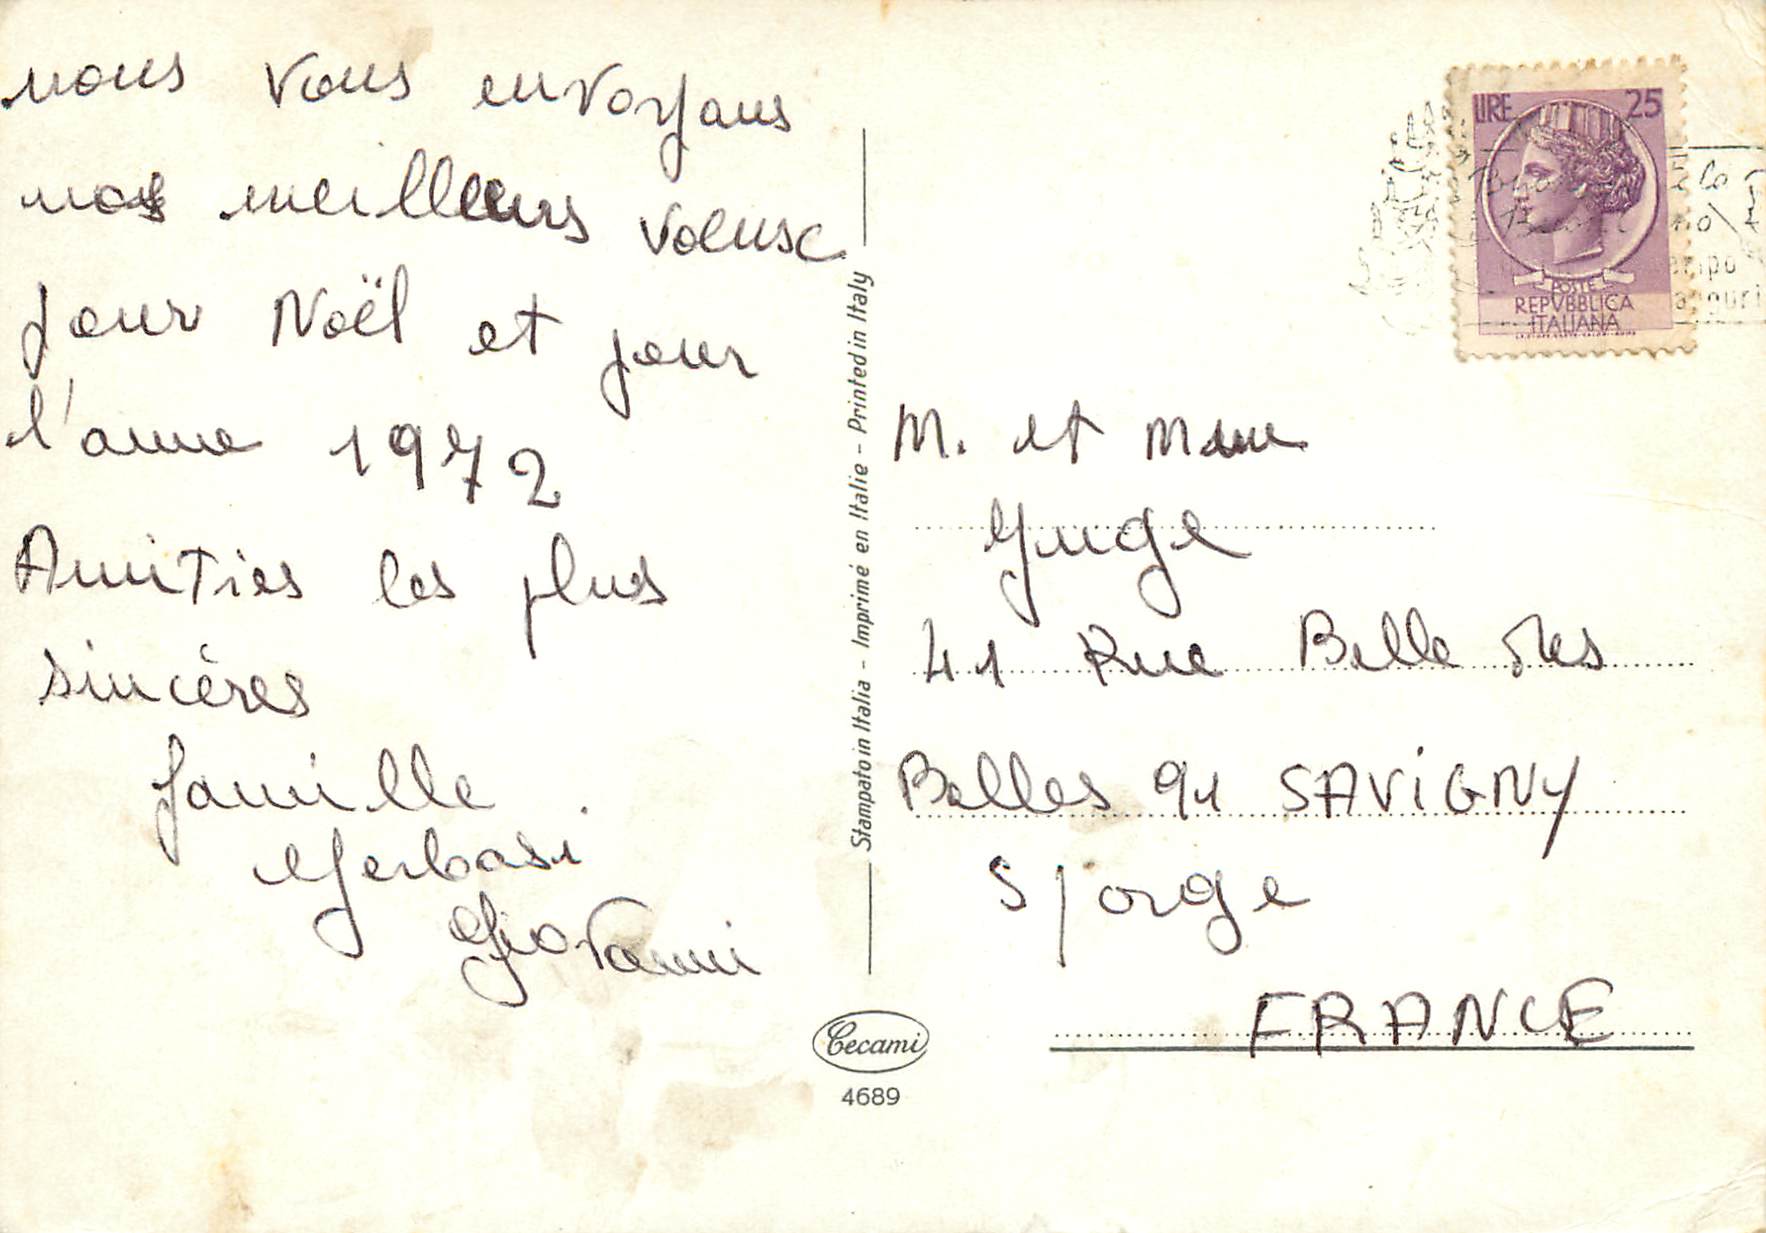 nous vous envoyans
nos meilleurs voeusc
pour Noël et pour
l'anne 1972
Amities les plus
sincères
famille
Gerbasi
Giovanni
Stampato in Italia - Imprimé en Italie - Printed in Italy
Cecami
4689
LIRE 25
POSTE
REPVBBLICA
ITALIANA
M. et Mme
41 Rue Belle des
Belles 91 SAViGNY
S/orge
FRANCE